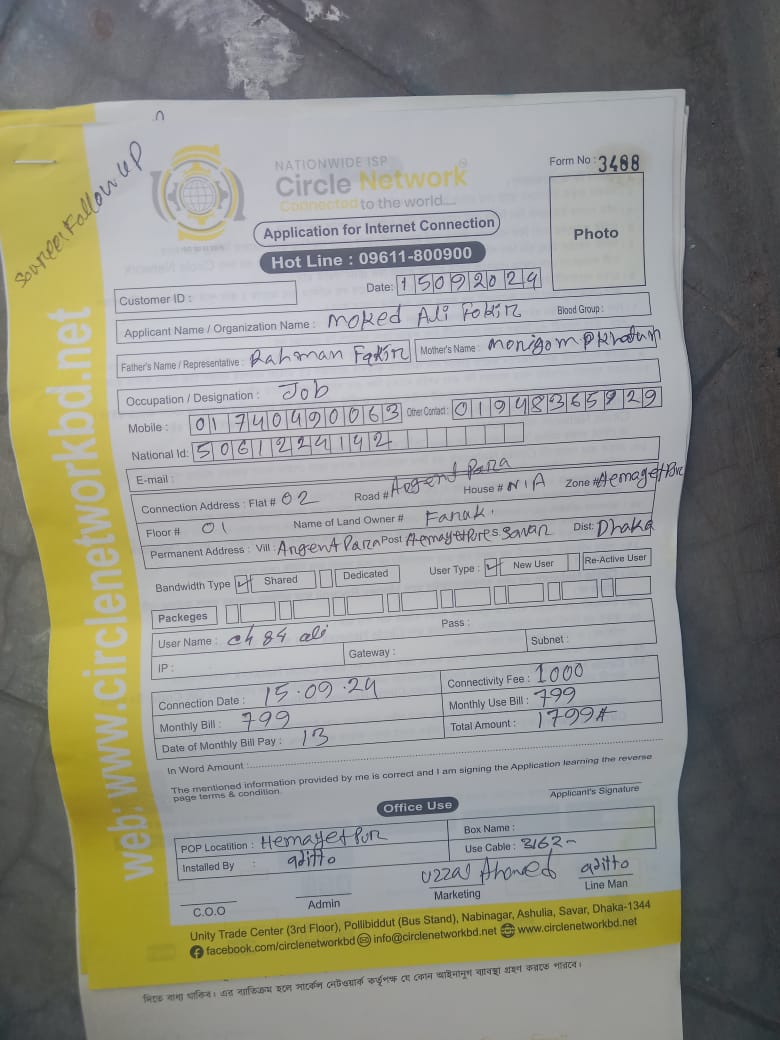 Sources Follow UP
web: www.circlenetworkbd.net
NATIONWIDE ISP
Circle Network
Connected to the world....
Form No : 3488
Application for Internet Connection
Hot Line : 09611-800900
Photo
Customer ID :
Date: 15092024
Applicant Name / Organization Name : Moked Ali Fokir Blood Group :
Father's Name / Representative : Rahman Fakir Mother's Name : Monigom Khatun
Occupation / Designation : Job
Mobile : 01740490063 Other Contact : 01948365929
National Id: 5061224142
E-mail :
Connection Address : Flat # 02 Road # Argent Para House # N/A Zone # Hemayetpur
Floor # 01 Name of Land Owner # Fanak.
Permanent Address : Vill : Argent Para Post Hemayetpur P.S: Savar Dist: Dhaka
Bandwidth Type ✓ Shared Dedicated User Type : ✓ New User Re-Active User
Packeges
User Name : ch 84 ali Pass :
IP : Gateway : Subnet :
Connection Date : 15.09.24 Connectivity Fee : 1000
Monthly Bill : 799 Monthly Use Bill : 799
Date of Monthly Bill Pay : 13 Total Amount : 1799#
In Word Amount :
The mentioned information provided by me is correct and I am signing the Application learning the reverse
page terms & condition.
Applicant's Signature
Office Use
POP Locatition : Hemayetpur Box Name :
Installed By : aditto Use Cable : 3162-
uzzal Ahmed aditto
C.O.O Admin Marketing Line Man
Unity Trade Center (3rd Floor), Pollibiddut (Bus Stand), Nabinagar, Ashulia, Savar, Dhaka-1344
facebook.com/circlenetworkbd info@circlenetworkbd.net www.circlenetworkbd.net
দিতে বাধ্য থাকিব। এর ব্যতিক্রম হলে সার্কেল নেটওয়ার্ক কর্তৃপক্ষ যে কোন আইনানুগ ব্যবস্থা গ্রহণ করতে পারবে।